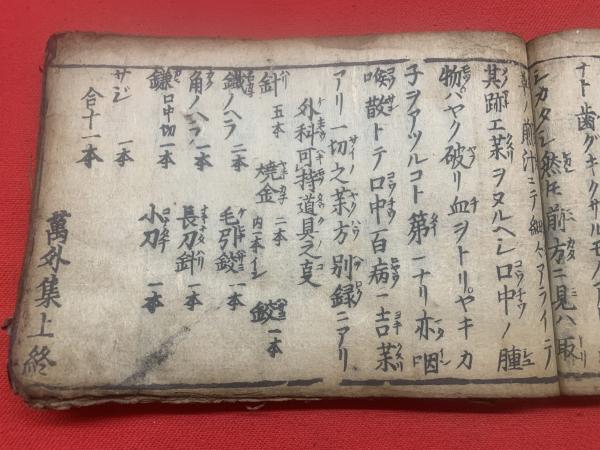 ナト歯グキクサルモノアリ
シカタシ然モ前方ニ見ハ取
草ノ煎汁ニテ細々アライテ
其跡エ薬ヲヌルヘシ口中ノ腫
物バヤク破リ血ヲトリヤキカ
子ヲアツルコト第一ナリ亦咽
喉散トテ口中百病ニ吉薬
アリ一切之薬方別録ニアリ
外科可持道具之支
針 五本 焼金 二本 内一本イシ 鋏 一本
鐵ノヘラ 二本 毛引鋏 一本
角ノヘラ 一本 長刀針 一本
鎌口中切 一本 小刀 一本
サジ 一本
合十一本
萬外集上終